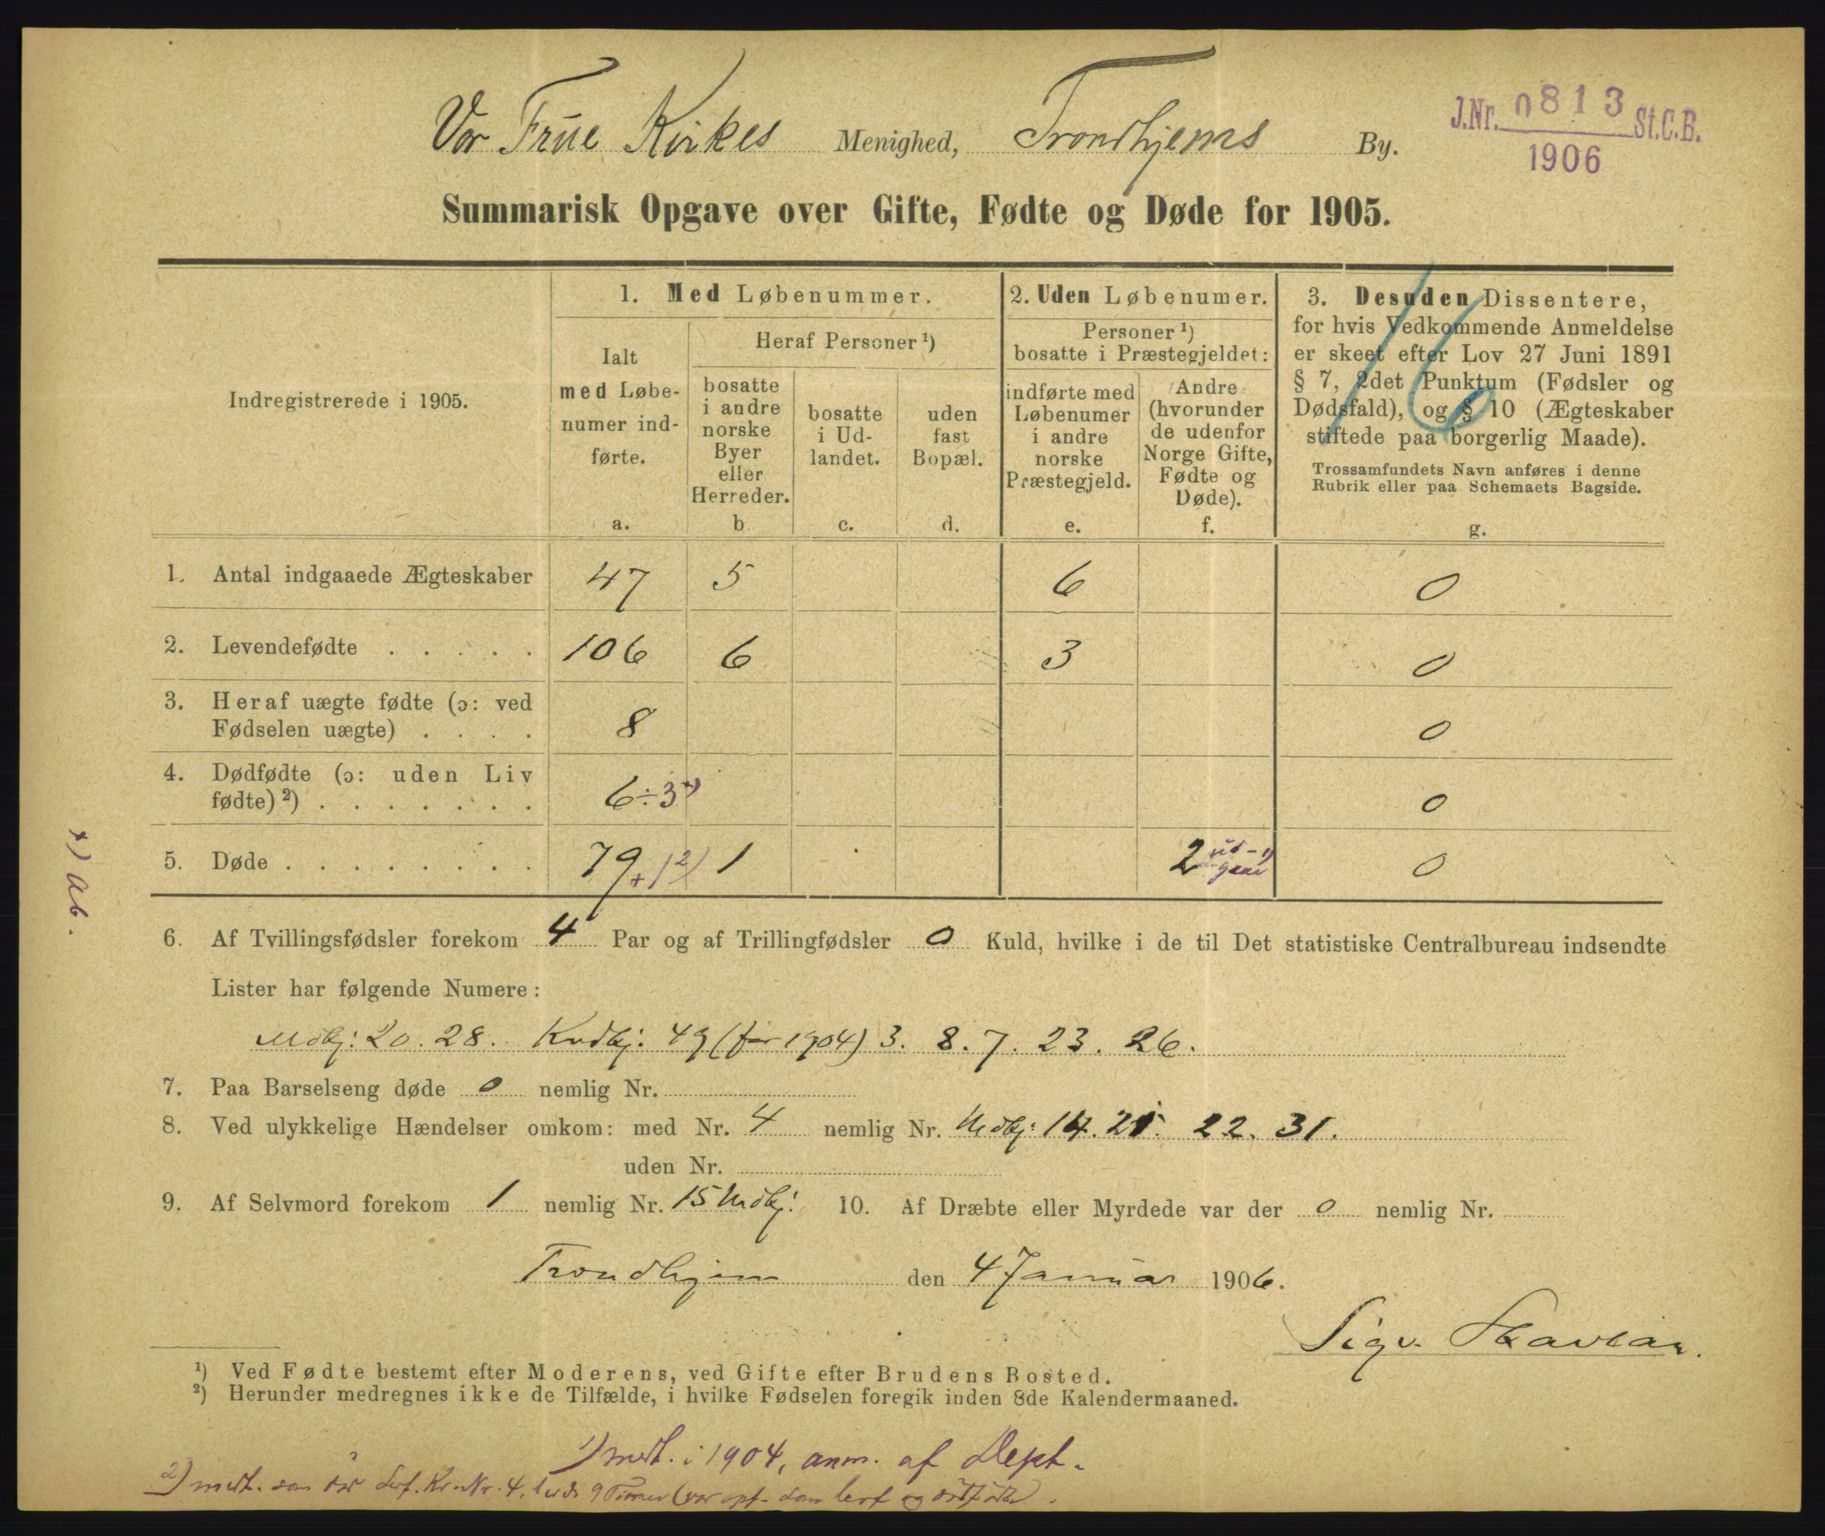 Vor Frue Kirkes Menighed, Trondhjems By.
J.Nr. 0813 St.C.B.
1906
Summarisk Opgave over Gifte, Fødte og Døde for 1905.
16
Indregistrerede i 1905.
1. Med Løbenummer.
Ialt
med Løbe-
numer ind-
førte.
a.
Heraf Personer ¹)
bosatte
i andre
norske
Byer
eller
Herreder.
b
bosatte
i Ud-
landet.
c.
uden
fast
Bopæl.
d.
2. Uden Løbenumer.
Personer ¹)
bosatte i Præstegjeldet:
indførte med
Løbenumer
i andre
norske
Præstegjeld.
e.
Andre
(hvorunder
de udenfor
Norge Gifte,
Fødte og
Døde).
f.
3. Desuden Dissentere,
for hvis Vedkommende Anmeldelse
er skeet efter Lov 27 Juni 1891
§ 7, 2det Punktum (Fødsler og
Dødsfald), og § 10 (Ægteskaber
stiftede paa borgerlig Maade).
Trossamfundets Navn anføres i denne
Rubrik eller paa Schemaets Bagside.
g.
1. Antal indgaaede Ægteskaber 47 5 6 0
2. Levendefødte . . . . . 106 6 3 0
3. Heraf uægte fødte (ɔ: ved
Fødselen uægte) . . . . 8 0
4. Dødfødte (ɔ: uden Liv
fødte) ²) . . . . . . . 6 ÷ 3 x) 0
5. Døde . . . . . . . . 79 + 1 2) 1 2 ud- 1) 0
gaar
x) Ab.
6. Af Tvillingsfødsler forekom 4 Par og af Trillingfødsler 0 Kuld, hvilke i de til Det statistiske Centralbureau indsendte
Lister har følgende Numere:
Mdkj: 20. 28. Kvdkj. 49 (for 1904) 3. 8. 7. 23. 26.
7. Paa Barselseng døde 0 nemlig Nr.
8. Ved ulykkelige Hændelser omkom: med Nr. 4 nemlig Nr. Mdkj: 14. 21. 22. 31.
uden Nr.
9. Af Selvmord forekom 1 nemlig Nr. 15 Mdkj. 10. Af Dræbte eller Myrdede var der 0 nemlig Nr.
Trondhjem den 4 Januar 1906.
Sigv. Skavlan.
¹) Ved Fødte bestemt efter Moderens, ved Gifte efter Brudens Bosted.
²) Herunder medregnes ikke de Tilfælde, i hvilke Fødselen foregik inden 8de Kalendermaaned.
1) medt. i 1904, anm. af Dept.
2) medt. som død Kr. Nr. 4, 9 Timer (var opf. som lev. og dødfødt).